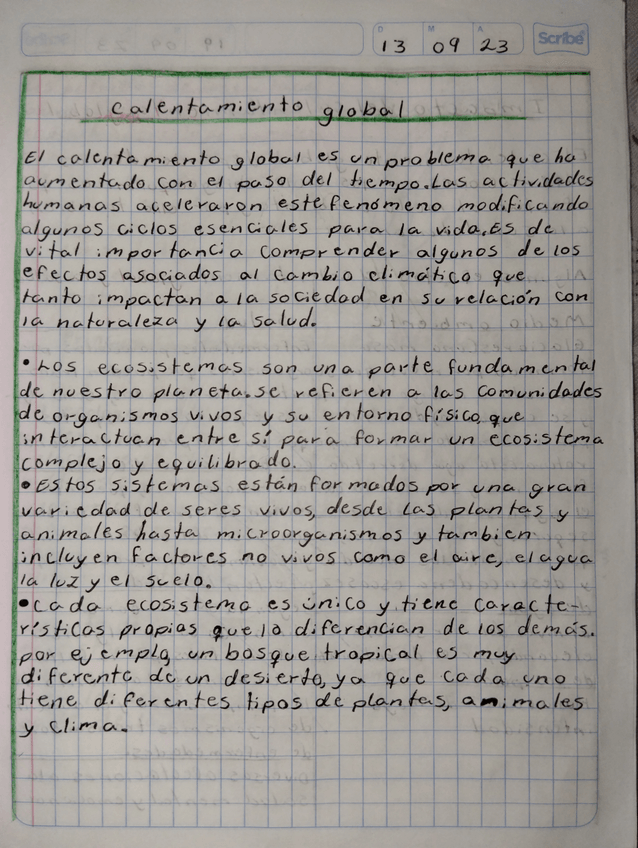 D M A
13 09 23 Scribe
calentamiento global
El calentamiento global es un problema que ha
aumentado con el paso del tiempo. Las actividades
humanas aceleraron este fenómeno modificando
algunos ciclos esenciales para la vida. Es de
vital importancia comprender algunos de los
efectos asociados al cambio climático que
tanto impactan a la sociedad en su relación con
la naturaleza y la salud.
• Los ecosistemas son una parte fundamental
de nuestro planeta. se refieren a las comunidades
de organismos vivos y su entorno físico, que
interactúan entre sí para formar un ecosistema
complejo y equilibrado.
• Estos sistemas están formados por una gran
variedad de seres vivos, desde las plantas y
animales hasta microorganismos y tambien
incluyen factores no vivos como el aire, el agua
la luz y el suelo.
• Cada ecosistema es único y tiene caracte-
rísticas propias que lo diferencian de los demás.
por ejemplo, un bosque tropical es muy
diferente de un desierto, ya que cada uno
tiene diferentes tipos de plantas, animales
y clima.